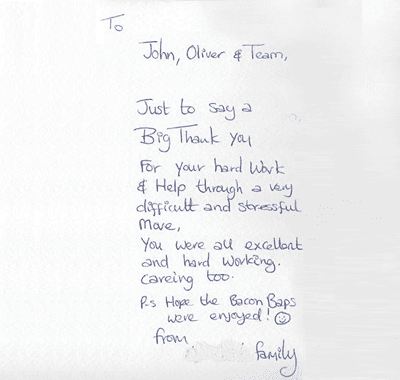 To
John, Oliver & Team,
Just to say a
Big Thank you
For your hard Work
& Help through a very
difficult and stressful
Move,
You were all excellant
and hard working.
Careing too.
P.s Hope the Bacon Baps
were enjoyed!
from
family